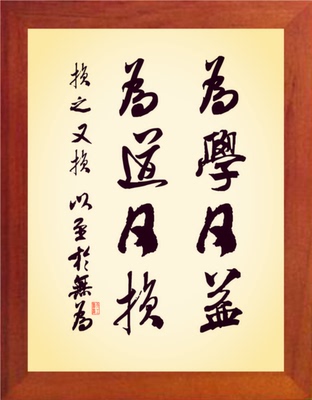 為學日益
為道日損
損之又損以至於無為